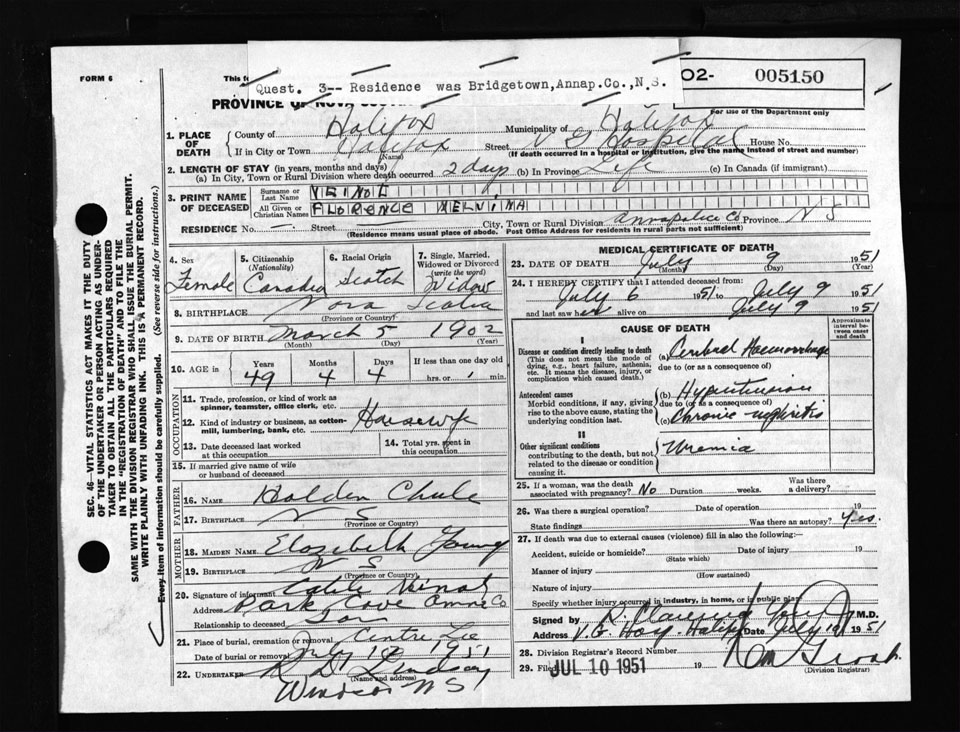 FORM 6
This fo
Quest. 3-- Residence was Bridgetown, Annap.Co.,N.S.
O2- 005150
For use of the Department only
PROVINCE OF NOVA
SEC. 46—VITAL STATISTICS ACT MAKES IT THE DUTY OF THE UNDERTAKER OR PERSON ACTING AS UNDERTAKER TO OBTAIN ALL THE PARTICULARS REQUIRED IN THE "REGISTRATION OF DEATH" AND TO FILE THE SAME WITH THE DIVISION REGISTRAR WHO SHALL ISSUE THE BURIAL PERMIT.
WRITE PLAINLY WITH UNFADING INK. THIS IS A PERMANENT RECORD.
Every item of information should be carefully supplied. (See reverse side for instructions.)
1. PLACE OF DEATH
County of Halifax Municipality of Halifax
If in City or Town Halifax (Name) Street V G Hospital House No.
(If death occurred in a hospital or institution, give the name instead of street and number)
2. LENGTH OF STAY (in years, months and days)
(a) In City, Town or Rural Division where death occurred 2 days (b) In Province Life (c) In Canada (if immigrant)
3. PRINT NAME OF DECEASED
Surname or Last Name VEINOT
All Given or Christian Names FLORENCE MELVINA
RESIDENCE No. — Street City, Town or Rural Division Annapolis Co Province N S
(Residence means usual place of abode. Post Office Address for residents in rural parts not sufficient)
4. Sex Female
5. Citizenship (Nationality) Canada
6. Racial Origin Scotch
7. Single, Married, Widowed or Divorced (write the word) Widow
8. BIRTHPLACE Nova Scotia
(Province or Country)
9. DATE OF BIRTH March 5 1902
(Month) (Day) (Year)
10. AGE in Years 49 Months 4 Days 4 If less than one day old hrs. or min.
OCCUPATION
11. Trade, profession, or kind of work as spinner, teamster, office clerk, etc.
12. Kind of industry or business, as cotton-mill, lumbering, bank, etc. Housewife
13. Date deceased last worked at this occupation
14. Total yrs. spent in this occupation
15. If married give name of wife or husband of deceased
FATHER
16. NAME Holden
17. BIRTHPLACE N S
(Province or Country)
MOTHER
18. MAIDEN NAME Elizabeth Young
19. BIRTHPLACE N S
(Province or Country)
20. Signature of informant
Address Park Cove Anna Co
Relationship to deceased Son
21. Place of burial, cremation or removal Centre
Date of burial or removal July 12 1951
22. UNDERTAKER Lindsay
(Name and address)
Windsor N S
MEDICAL CERTIFICATE OF DEATH
23. DATE OF DEATH July 9 1951
(Month) (Day) (Year)
24. I HEREBY CERTIFY that I attended deceased from:
July 6 1951 to July 9 1951
and last saw her alive on July 9 1951
CAUSE OF DEATH
Approximate interval between onset and death
I
Disease or condition directly leading to death
(This does not mean the mode of dying, e.g., heart failure, asthenia, etc. It means the disease, injury, or complication which caused death.)
(a) Cerebral Haemorrhage
due to (or as a consequence of)
Antecedent causes
Morbid conditions, if any, giving rise to the above cause, stating the underlying condition last.
(b) Hypertension
due to (or as a consequence of)
(c) Chronic nephritis
II
Other significant conditions
contributing to the death, but not related to the disease or condition causing it.
Uremia
25. If a woman, was the death associated with pregnancy? No Duration weeks. Was there a delivery?
26. Was there a surgical operation? Date of operation 19
State findings Was there an autopsy? Yes.
27. If death was due to external causes (violence) fill in also the following:—
Accident, suicide or homicide? Date of injury 19
(State which)
Manner of injury
(How sustained)
Nature of injury
Specify whether injury occurred in industry, in home, or in public place
Signed by M.D.
Address V.G. Hosp. Halifax Date July 10 1951
28. Division Registrar's Record Number
29. Filed JUL 10 1951 19
(Division Registrar)